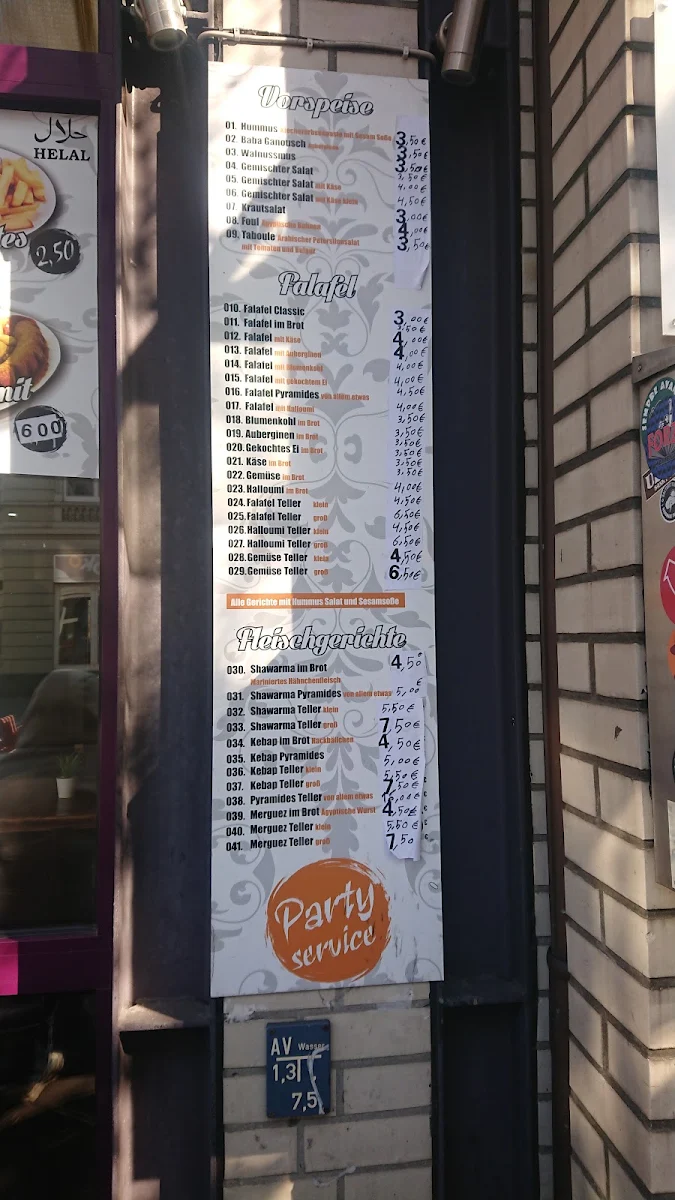 حلال
HELAL
2,50
mit
6 00
Vorspeise
01. Hummus Kichererbsenpüree mit Sesam Soße 3,50€
02. Baba Ganousch Auberginen 3,50€
03. Walnussmus 3,50€
04. Gemischter Salat 3,50€
05. Gemischter Salat mit Käse 4,00€
06. Gemischter Salat mit Käse klein 4,50€
07. Krautsalat 3,00€
08. Foul Ägyptische Bohnen 4,00€
09. Taboule Arabischer Petersiliensalat 3,50€
mit Tomaten und Bulgur
Falafel
010. Falafel Classic 3,00€
011. Falafel im Brot 3,50€
012. Falafel mit Käse 4,00€
013. Falafel mit Auberginen 4,00€
014. Falafel mit Blumenkohl 4,00€
015. Falafel mit gekochtem Ei 4,00€
016. Falafel Pyramides von allem etwas 4,50€
017. Falafel mit Halloumi 4,00€
018. Blumenkohl im Brot 3,50€
019. Auberginen im Brot 3,50€
020. Gekochtes Ei im Brot 3,50€
021. Käse im Brot 3,50€
022. Gemüse im Brot 3,50€
023. Halloumi im Brot 4,00€
024. Falafel Teller klein 4,50€
025. Falafel Teller groß 6,50€
026. Halloumi Teller klein 4,50€
027. Halloumi Teller groß 6,50€
028. Gemüse Teller klein 4,50€
029. Gemüse Teller groß 6,50€
Alle Gerichte mit Hummus Salat und Sesamsoße
Fleischgerichte
030. Shawarma im Brot 4,50€
Mariniertes Hähnchenfleisch
031. Shawarma Pyramides von allem etwas 5,00
032. Shawarma Teller klein 5,50€
033. Shawarma Teller groß 7,50€
034. Kebap im Brot Hackbällchen 4,50€
035. Kebap Pyramides 5,00€
036. Kebap Teller klein 5,50€
037. Kebap Teller groß 7,50€
038. Pyramides Teller von allem etwas
039. Merguez im Brot Ägyptische Wurst 4,50€
040. Merguez Teller klein 5,50€
041. Merguez Teller groß 7,50
Party
service
AV Wasser
1,3
7,5